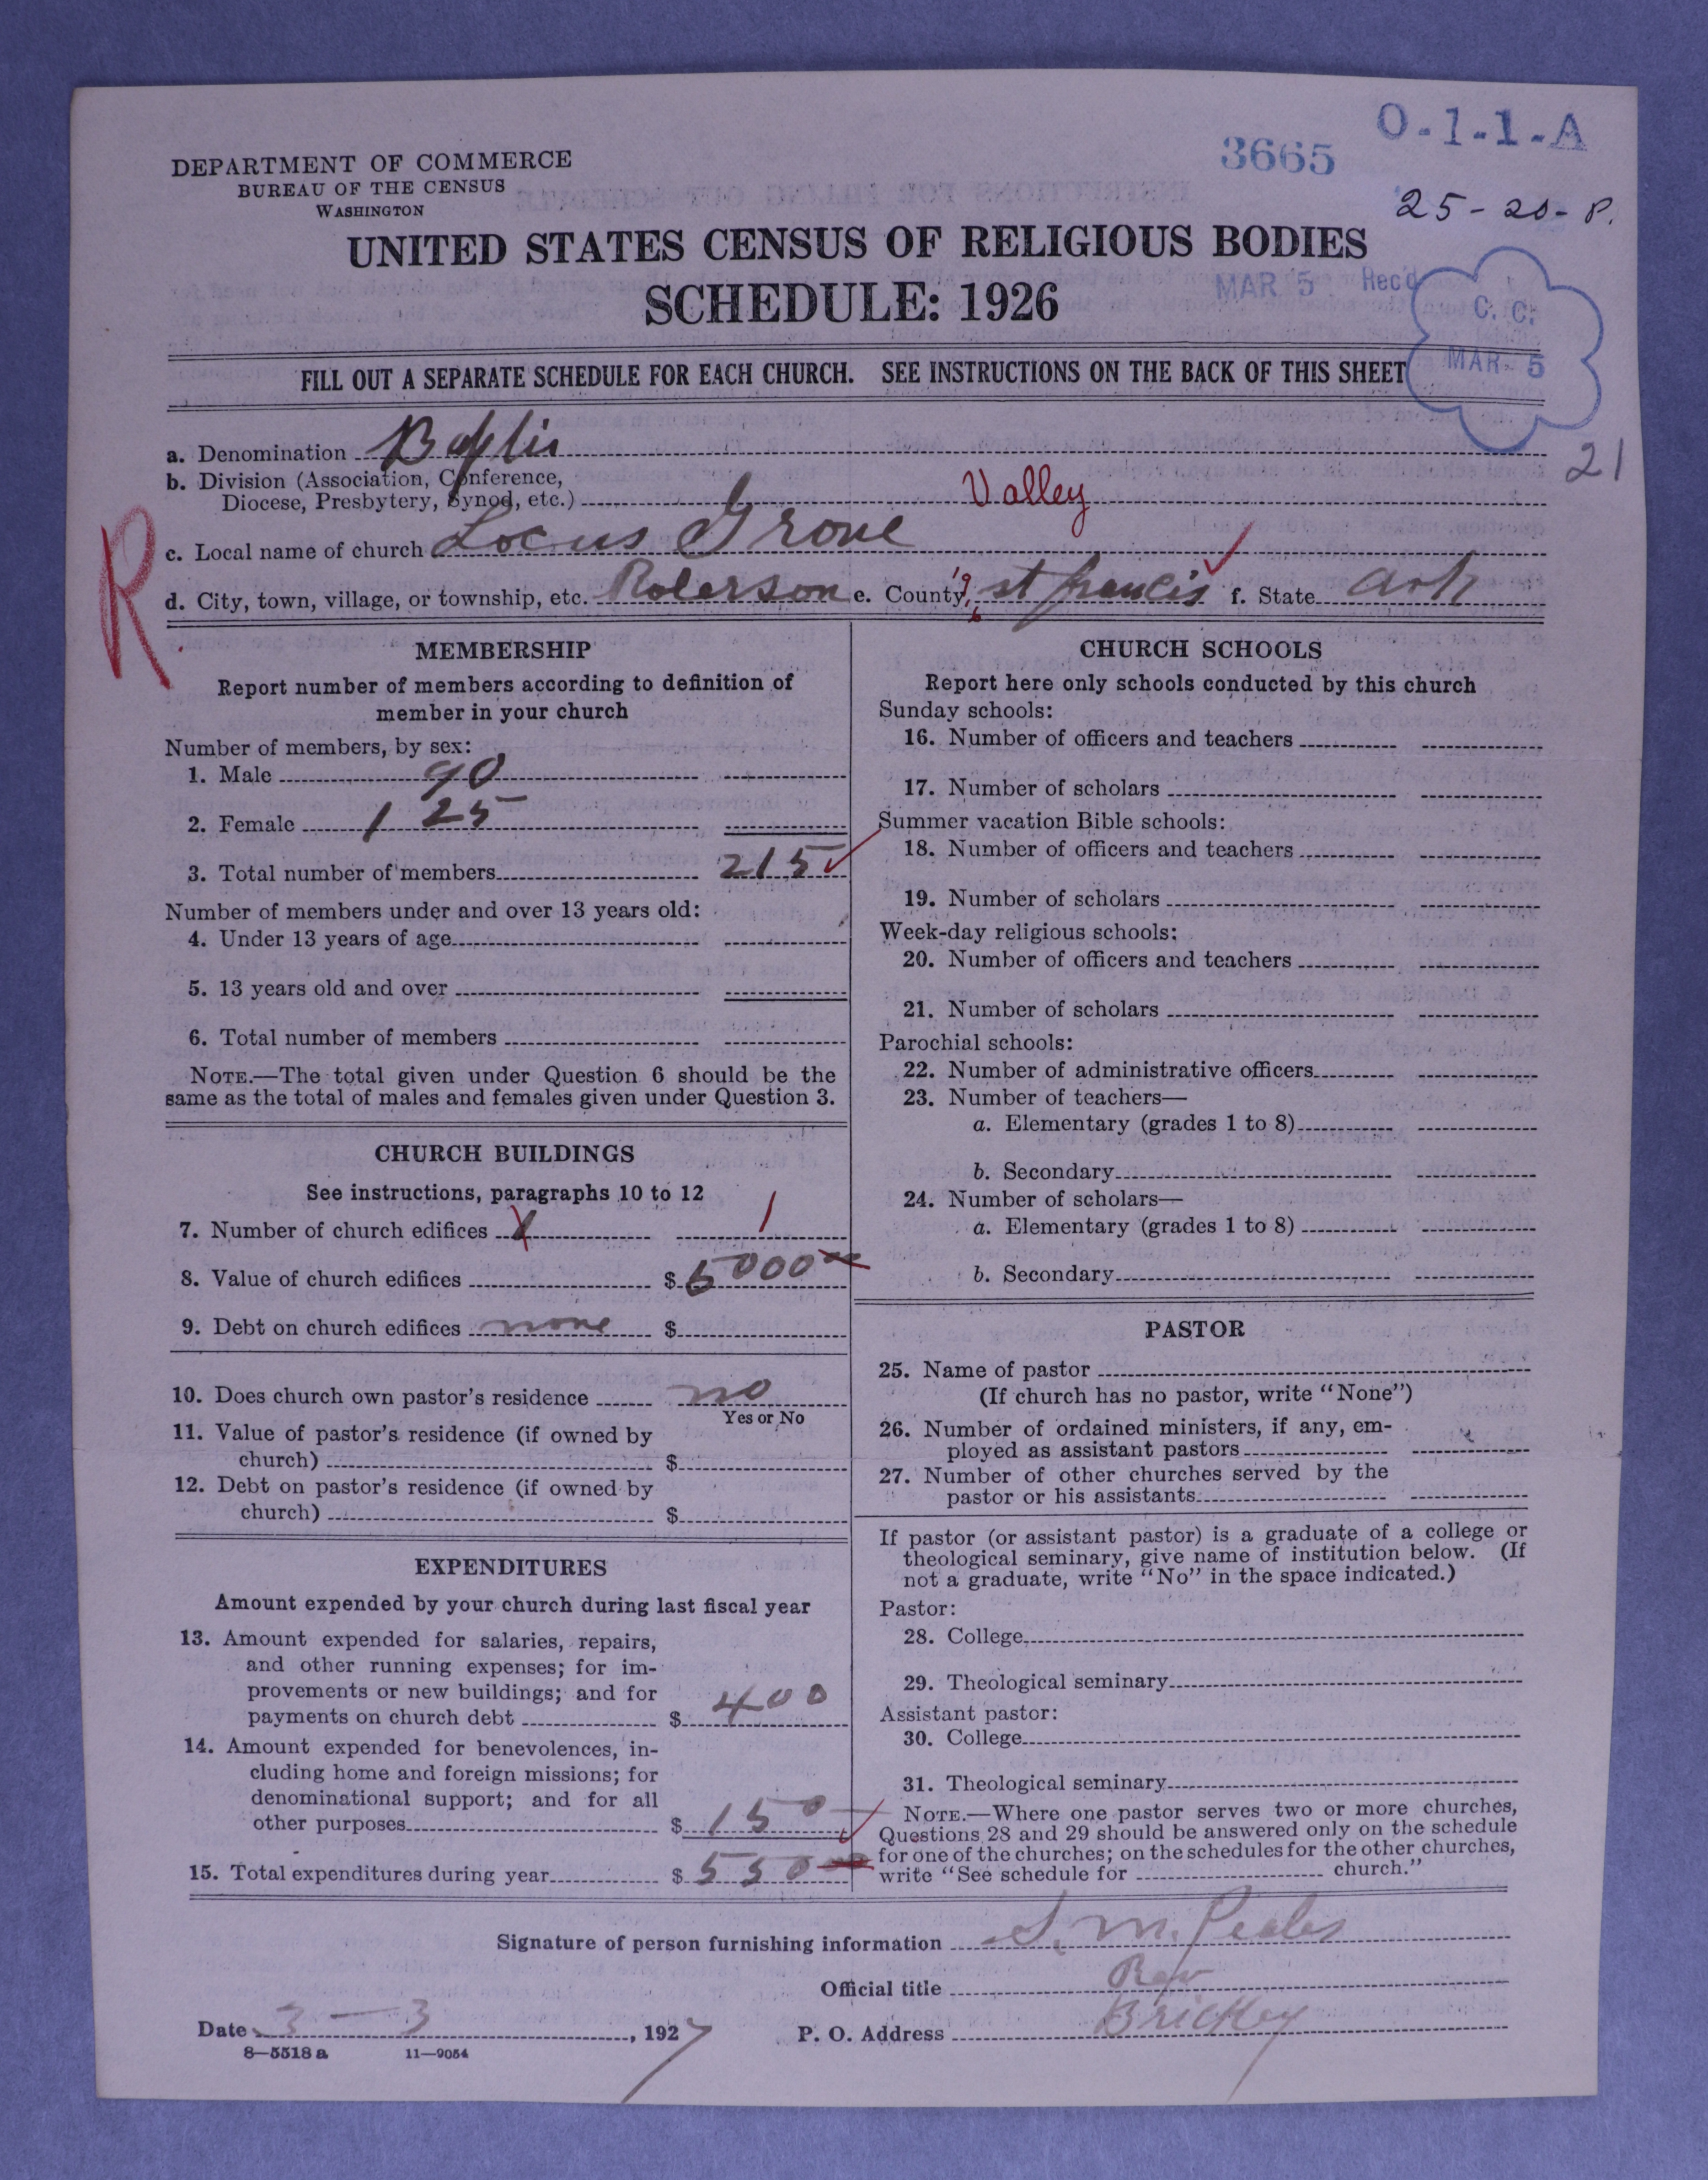 O-1-1-A
3665
DEPARTMENT OF COMMERCE
BUREAU OF THE CENSUS
WASHINGTON
25-20-P.
UNITED STATES CENSUS OF RELIGIOUS BODIES
SCHEDULE: 1926
MAR 5 Rec'd
C. C.
MAR 5
FILL OUT A SEPARATE SCHEDULE FOR EACH CHURCH. SEE INSTRUCTIONS ON THE BACK OF THIS SHEET
21
a. Denomination
b. Division (Association, Conference,
Diocese, Presbytery, Synod, etc.) Valley
R
c. Local name of church Locus Grove
d. City, town, village, or township, etc. Roberson e. County st francis f. State Ark
MEMBERSHIP
Report number of members according to definition of
member in your church
Number of members, by sex:
1. Male 90
2. Female 125
3. Total number of members 215
Number of members under and over 13 years old:
4. Under 13 years of age
5. 13 years old and over
6. Total number of members
NOTE.—The total given under Question 6 should be the
same as the total of males and females given under Question 3.
CHURCH BUILDINGS
See instructions, paragraphs 10 to 12
7. Number of church edifices 1 1
8. Value of church edifices $ 5000
9. Debt on church edifices none $
10. Does church own pastor's residence no
Yes or No
11. Value of pastor's residence (if owned by
church) $
12. Debt on pastor's residence (if owned by
church) $
EXPENDITURES
Amount expended by your church during last fiscal year
13. Amount expended for salaries, repairs,
and other running expenses; for im-
provements or new buildings; and for
payments on church debt $ 400
14. Amount expended for benevolences, in-
cluding home and foreign missions; for
denominational support; and for all
other purposes $ 150
15. Total expenditures during year $ 550
CHURCH SCHOOLS
Report here only schools conducted by this church
Sunday schools:
16. Number of officers and teachers
17. Number of scholars
Summer vacation Bible schools:
18. Number of officers and teachers
19. Number of scholars
Week-day religious schools:
20. Number of officers and teachers
21. Number of scholars
Parochial schools:
22. Number of administrative officers
23. Number of teachers—
a. Elementary (grades 1 to 8)
b. Secondary
24. Number of scholars—
a. Elementary (grades 1 to 8)
b. Secondary
PASTOR
25. Name of pastor
(If church has no pastor, write "None")
26. Number of ordained ministers, if any, em-
ployed as assistant pastors
27. Number of other churches served by the
pastor or his assistants
If pastor (or assistant pastor) is a graduate of a college or
theological seminary, give name of institution below. (If
not a graduate, write "No" in the space indicated.)
Pastor:
28. College
29. Theological seminary
Assistant pastor:
30. College
31. Theological seminary
NOTE.—Where one pastor serves two or more churches,
Questions 28 and 29 should be answered only on the schedule
for one of the churches; on the schedules for the other churches,
write "See schedule for church."
Signature of person furnishing information S. M. Peales
Official title Rev
Date 3 — 3, 1927 P. O. Address Brickey
8—5518 a 11—9054